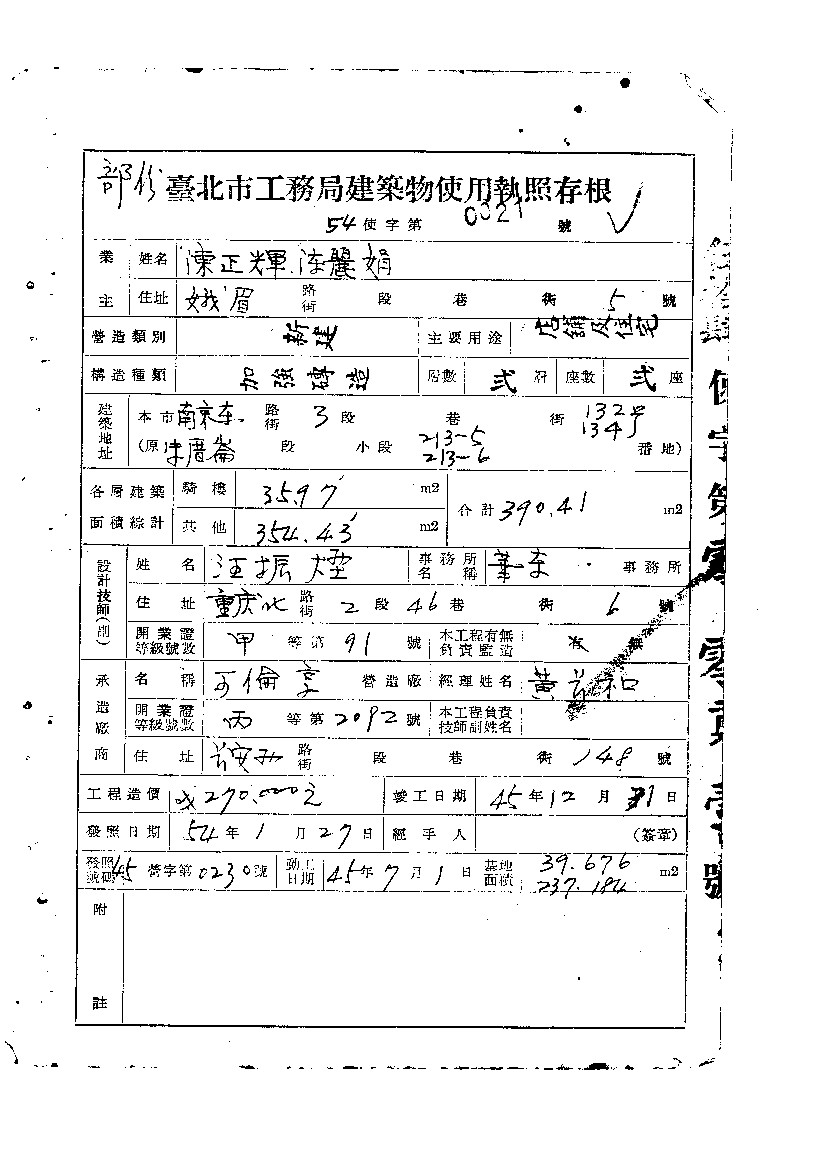 部份 臺北市工務局建築物使用執照存根
54 使字第 0021 號
業主 姓名 陳正輝.陳麗娟
住址 峨眉 路街 段 巷 街 5 號
營造類別 新建 主要用途 店舖及住宅
構造種類 加強磚造 層數 弍 層 座數 弍 座
建築地址 本市 南京東 路街 3 段 巷 街 132號 134号
(原 朱厝崙 段 小段 213-5 213-6 番地)
各層建築面積綜計 騎樓 35.97 m2 合計 390.41 m2
其他 354.43 m2
設計技師(副) 姓名 汪振煙 事務所名稱 華東 事務所
住址 重庆北 路街 2 段 46 巷 街 6 號
開業證等級號數 甲 等第 91 號 本工程有無負責監造 有 無
承造廠商 名稱 營造廠 經理姓名 黃
開業證等級號數 丙 等第 2092 號 本工程負責技師副姓名
住址 路街 段 巷 街 148 號
工程造價 270.000元 竣工日期 45年12月31日
發照日期 54年1月27日 經手人 (簽章)
發照號碼 45 營字第 0230 號 動工日期 45年7月1日 基地面積 39.676 237.184 m2
附註
使字第零零貳壹號